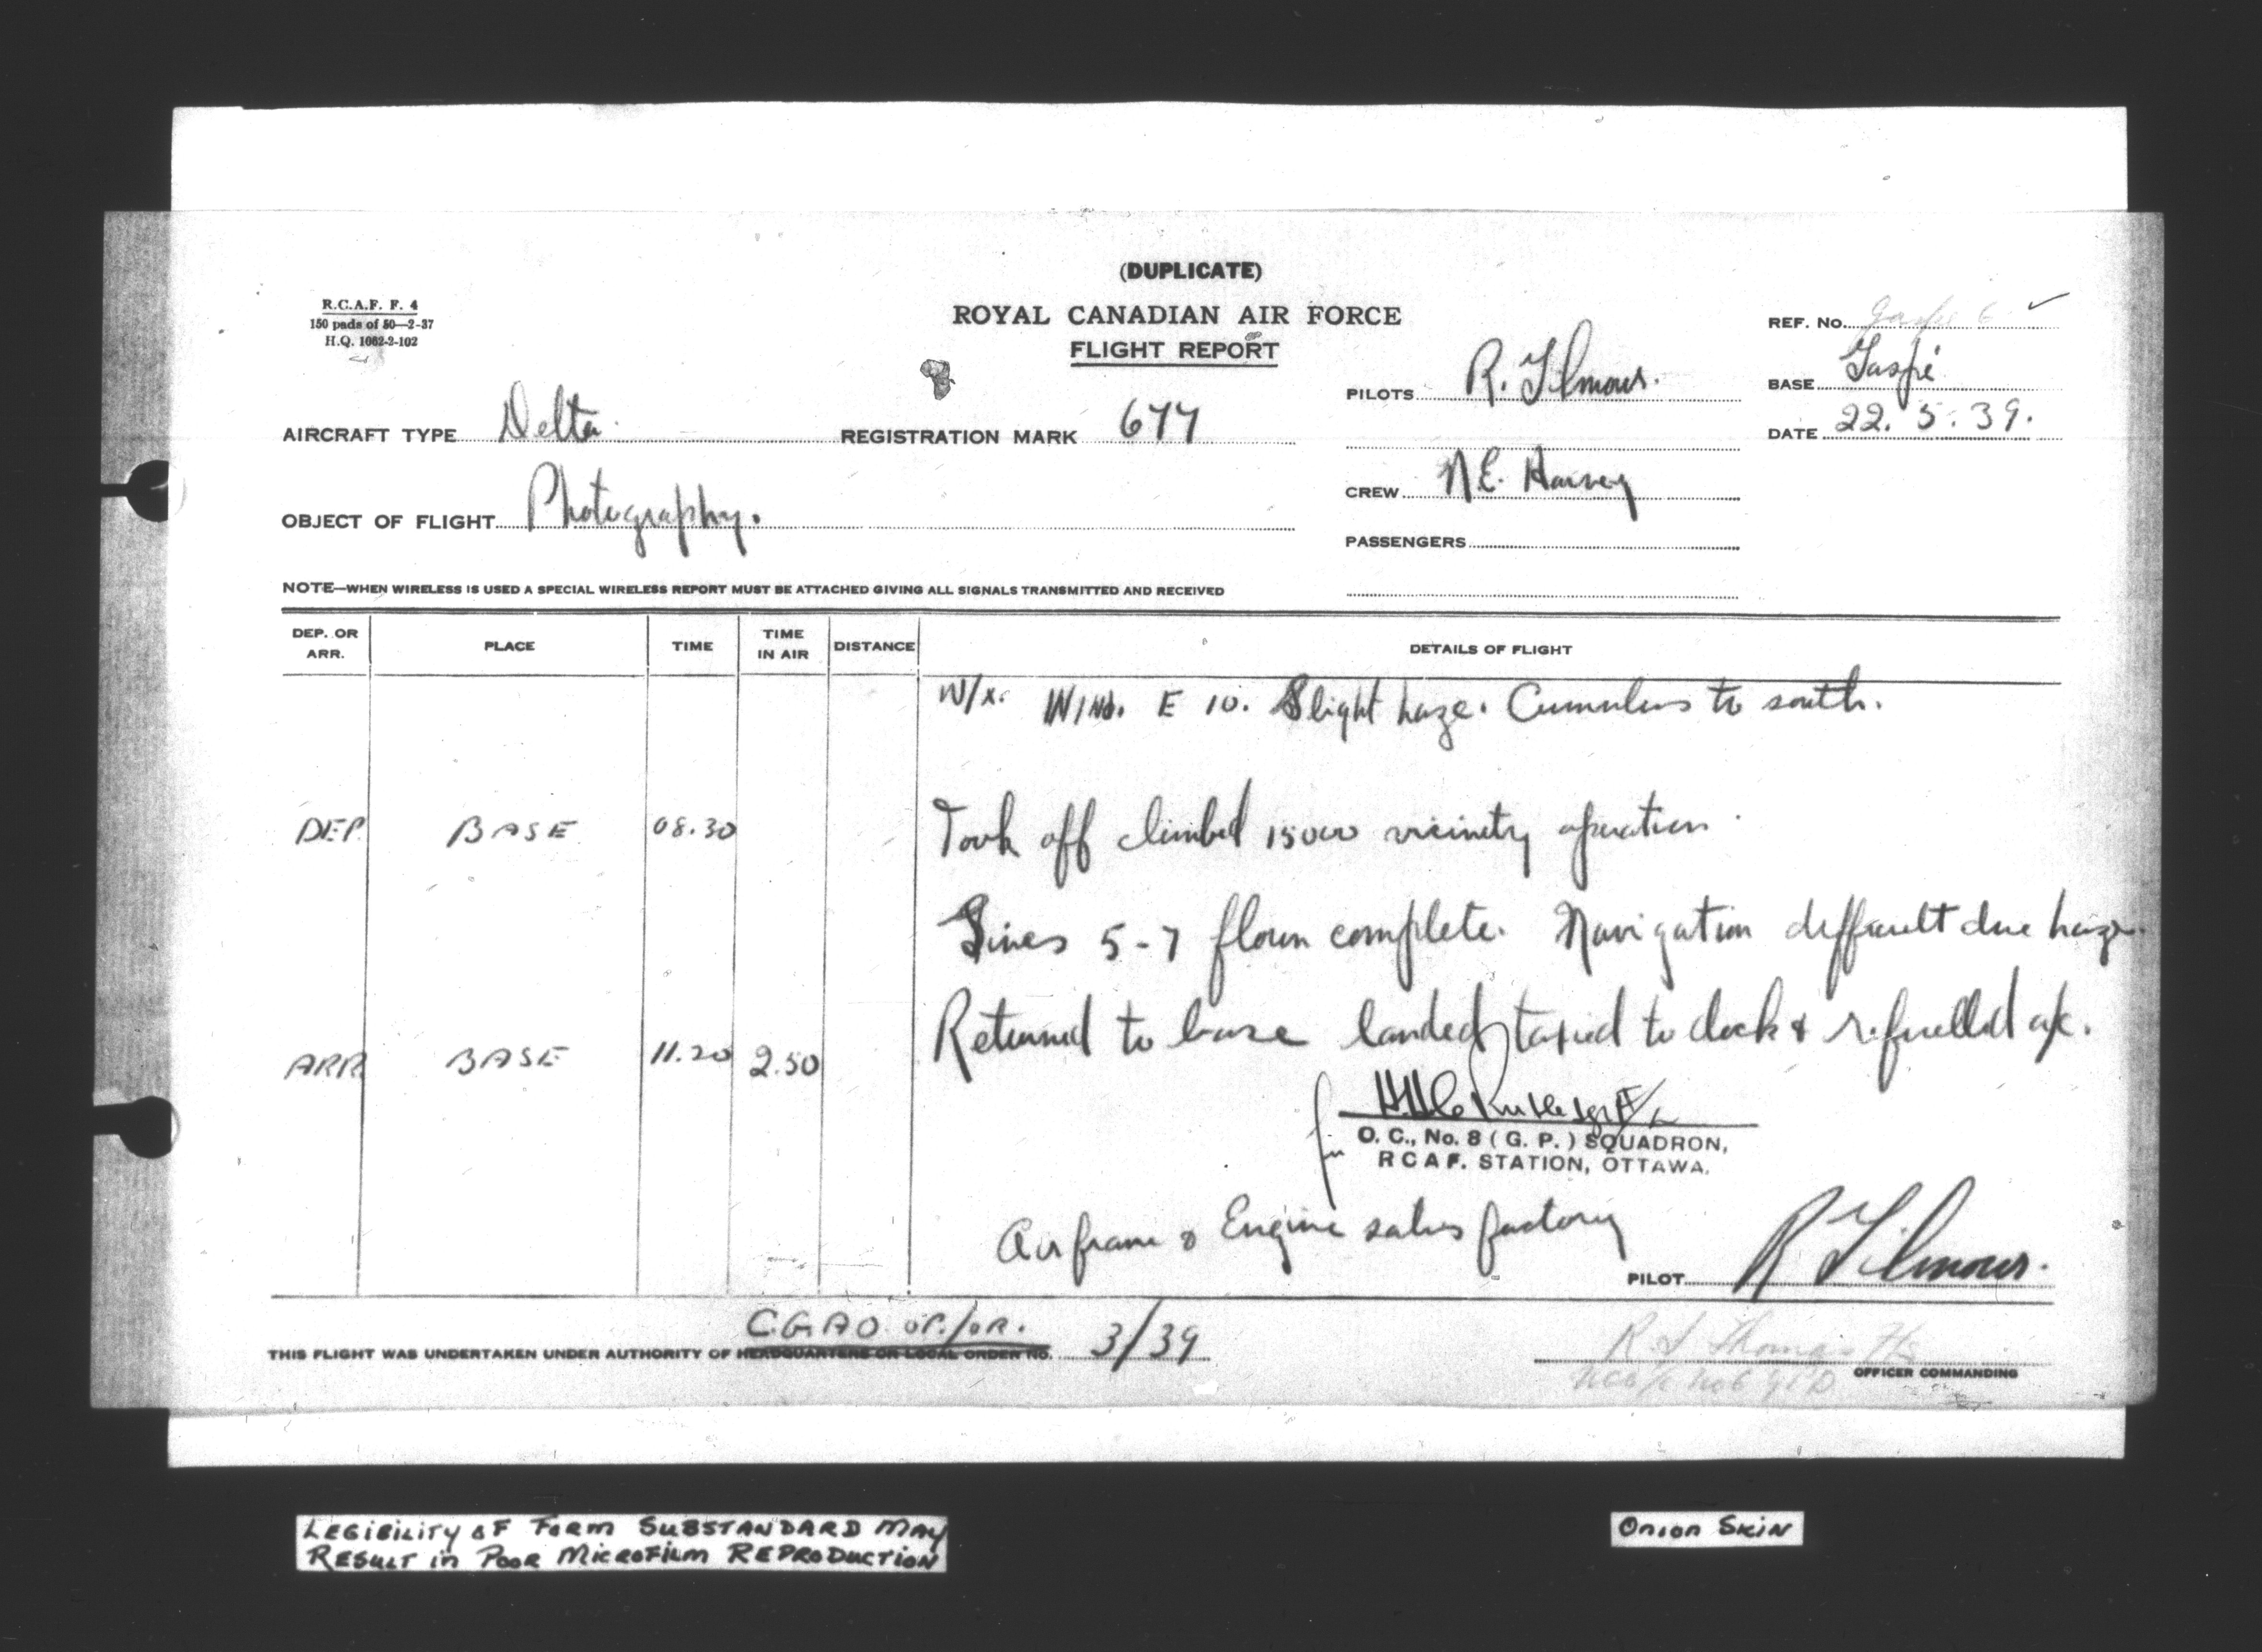 (DUPLICATE)
ROYAL CANADIAN AIR FORCE
FLIGHT REPORT
R.C.A.F. F. 4
150 pads of 50—2-37
H.Q. 1062-2-102
REF. No. Gaspé 6 ✓
BASE Gaspé
DATE 22.5.39.
PILOTS R. Gilmour.
AIRCRAFT TYPE Delta. REGISTRATION MARK 677
CREW N E. Harvey
OBJECT OF FLIGHT Photography.
PASSENGERS
NOTE—WHEN WIRELESS IS USED A SPECIAL WIRELESS REPORT MUST BE ATTACHED GIVING ALL SIGNALS TRANSMITTED AND RECEIVED
DEP. OR ARR. PLACE TIME TIME IN AIR DISTANCE DETAILS OF FLIGHT
W/x. WIND. E 10. Slight haze. Cumulus to south.
DEP. BASE 08.30 Took off climbed 15000 vicinity operation.
Lines 5-7 flown complete. Navigation difficult due haze.
ARR BASE 11.20 2.50 Returned to base landed, taxied to dock & refuelled a/c.
for
O. C., No. 8 (G. P.) SQUADRON,
R C A F. STATION, OTTAWA.
Airframe & Engine satisfactory
PILOT R Gilmour.
C.G.A.O. OP./OR.
THIS FLIGHT WAS UNDERTAKEN UNDER AUTHORITY OF HEADQUARTERS OR LOCAL ORDER NO. 3/39
R. I. Thomas
OFFICER COMMANDING
LEGIBILITY OF FORM SUBSTANDARD MAY
RESULT in POOR MICROFILM REPRODUCTION
ONION SKIN